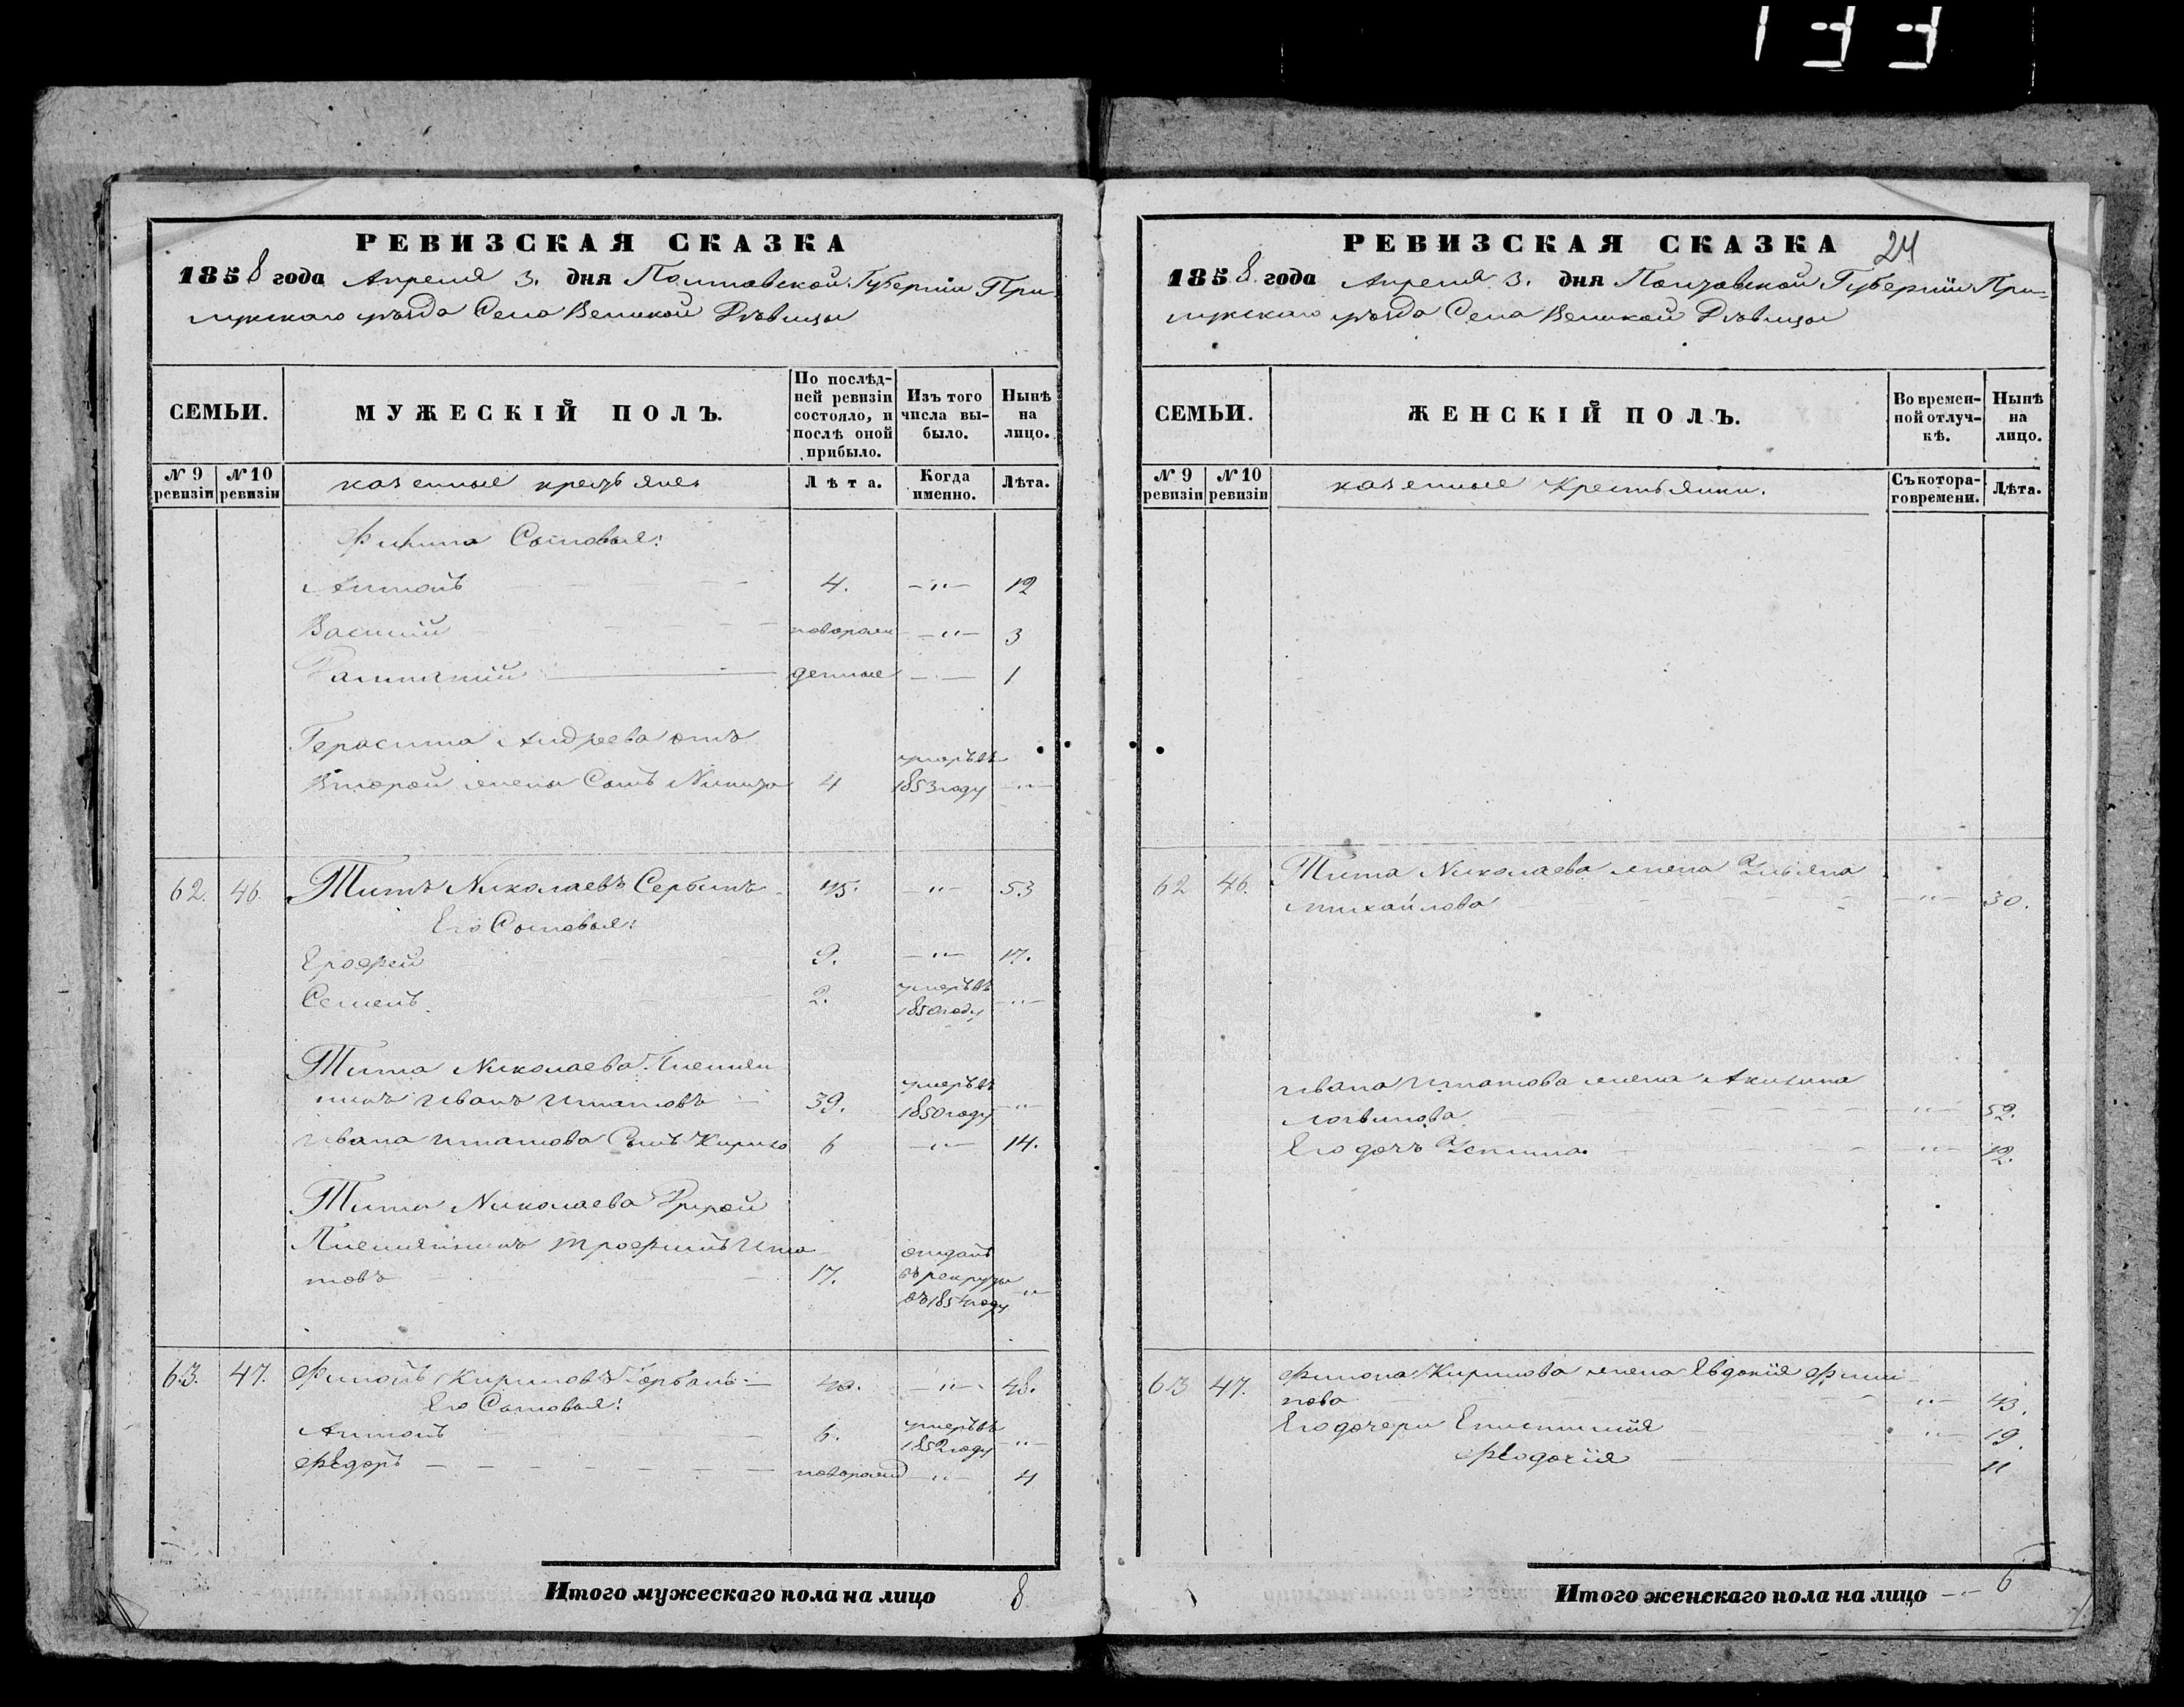 133
РЕВИЗСКАЯ СКАЗКА
1858 года Апреля 3. дня Полтавской Губернiи При-
лукскаго уѣзда Села Великой Дѣвицы
СЕМЬИ.
МУЖЕСКIЙ ПОЛЪ.
По послѣд-
ней ревизiи
состояло, и
послѣ оной
прибыло.
Изъ того
числа вы-
было.
Нынѣ
на
лицо.
№ 9 ревизiи
№ 10 ревизiи
казенные крестьяне
Лѣта.
Когда именно.
Лѣта.
Филипа Сыновья:
Антонъ 4. —"— 12
Василiй новорож —"— 3
денные — — 1
Герасима Андреева отъ умеръ въ
Второй жены Сынъ Никита 4 1853 году —"—
62. 46. Титъ Николаевъ Сербинъ 45. —"— 53
Его Сыновья:
Ерофей 9. —"— 17.
Семенъ 2. умеръ въ 1850 году —"—
Тита Николаева Племян
никъ Иванъ Игнатовъ 39. умеръ въ 1850 году —"—
Ивана Игнатова Сынъ Кирило 6 —"— 14.
Тита Николаева Другой
Племянникъ Трофимъ Игна
товъ 17. отданъ въ рекруты въ 1854 году —"—
63. 47. Филонъ Кириловъ Горбань 40. —"— 48.
Его Сыновья:
Антонъ 6. умеръ въ 1852 году —"—
Ѳедоръ новорожд —"— 4
Итого мужескаго пола на лицо 8
24
РЕВИЗСКАЯ СКАЗКА
1858 года Апреля 3. дня Полтавской Губернiи При-
лукскаго уѣзда Села Великой Дѣвицы
СЕМЬИ.
ЖЕНСКIЙ ПОЛЪ.
Во времен-
ной отлуч-
кѣ.
Нынѣ
на
лицо.
№ 9 ревизiи
№ 10 ревизiи
казенные Крестьянки.
Съ котора-
го времени.
Лѣта.
62 46. Тита Николаева жена Ульяна
Михайлова —"— 30.
Ивана Игнатова жена Акилина
Логвинова —"— 52.
Его дочь —"— 12.
63 47. Филона Кирилова жена Евдокiя Фили
пова —"— 43.
Его дочери Епистимiя —"— 19.
11
Итого женскаго пола на лицо —"— 6